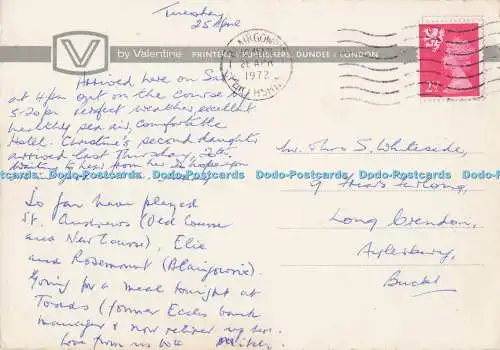 Tuesday
25 April
V by Valentine PRINTERS PUBLISHERS, DUNDEE LONDON
1972
2½
Arrived here on Sat
at 4 pm Got on the course by
5-20 pm Perfect weather, excellent
healthy sea air, comfortable
Hotel. Christine's second daughter
arrived last Thursday, 20th
waiting to hear from her
So far have played
St. Andrews (Old Course
and New Course), Elie
and Rosemount (Blairgowrie).
Going for a meal tonight at
(former Eccles bank
manager & now retired up here
Love from us both
S. Whiteside,
9
Long Crendon,
Aylesbury,
Bucks
Dodo-Postcards Dodo-Postcards Dodo-Postcards Dodo-Postcards Dodo-Postcards Dodo-Postcards